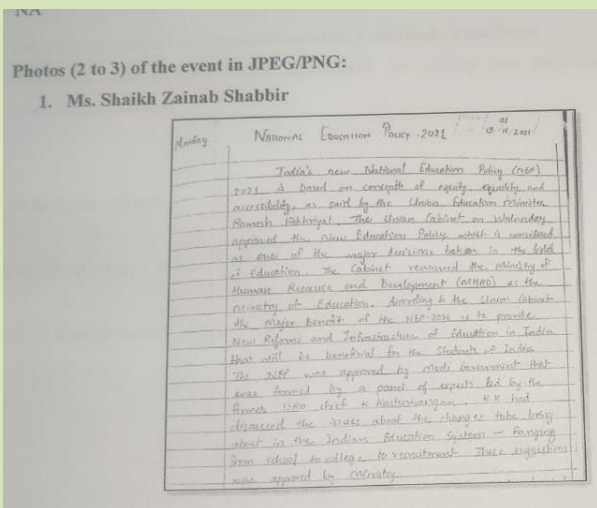 NA
Photos (2 to 3) of the event in JPEG/PNG:
1. Ms. Shaikh Zainab Shabbir
Monday
National Education Policy - 2021
01
2021
India's new National Education Policy (NEP)
2021 is based on concepts of equity, quality and
accessibility, as said by the Union Education Minister
Ramesh Pokhriyal. The Union Cabinet on Wednesday
approved the New Education Policy which is considered
as one of the major decisions taken in the field
of Education. The Cabinet renamed the Ministry of
Human Resource and Development (MHRD) as the
ministry of Education. According to the Union Cabinet
the major benefit of the NEP-2021 is to provide
New Reforms and Infrastructure of Education in India
that will be beneficial for the Students of India
The NEP was approved by Modi Government that
was formed by a panel of experts led by the
former ISRO chief K Kasturirangan. KK had
discussed the issues about the changes to be bring
about in the Indian Education System - Ranging
from school to college to recruitment These suggestions
were approved by ministry